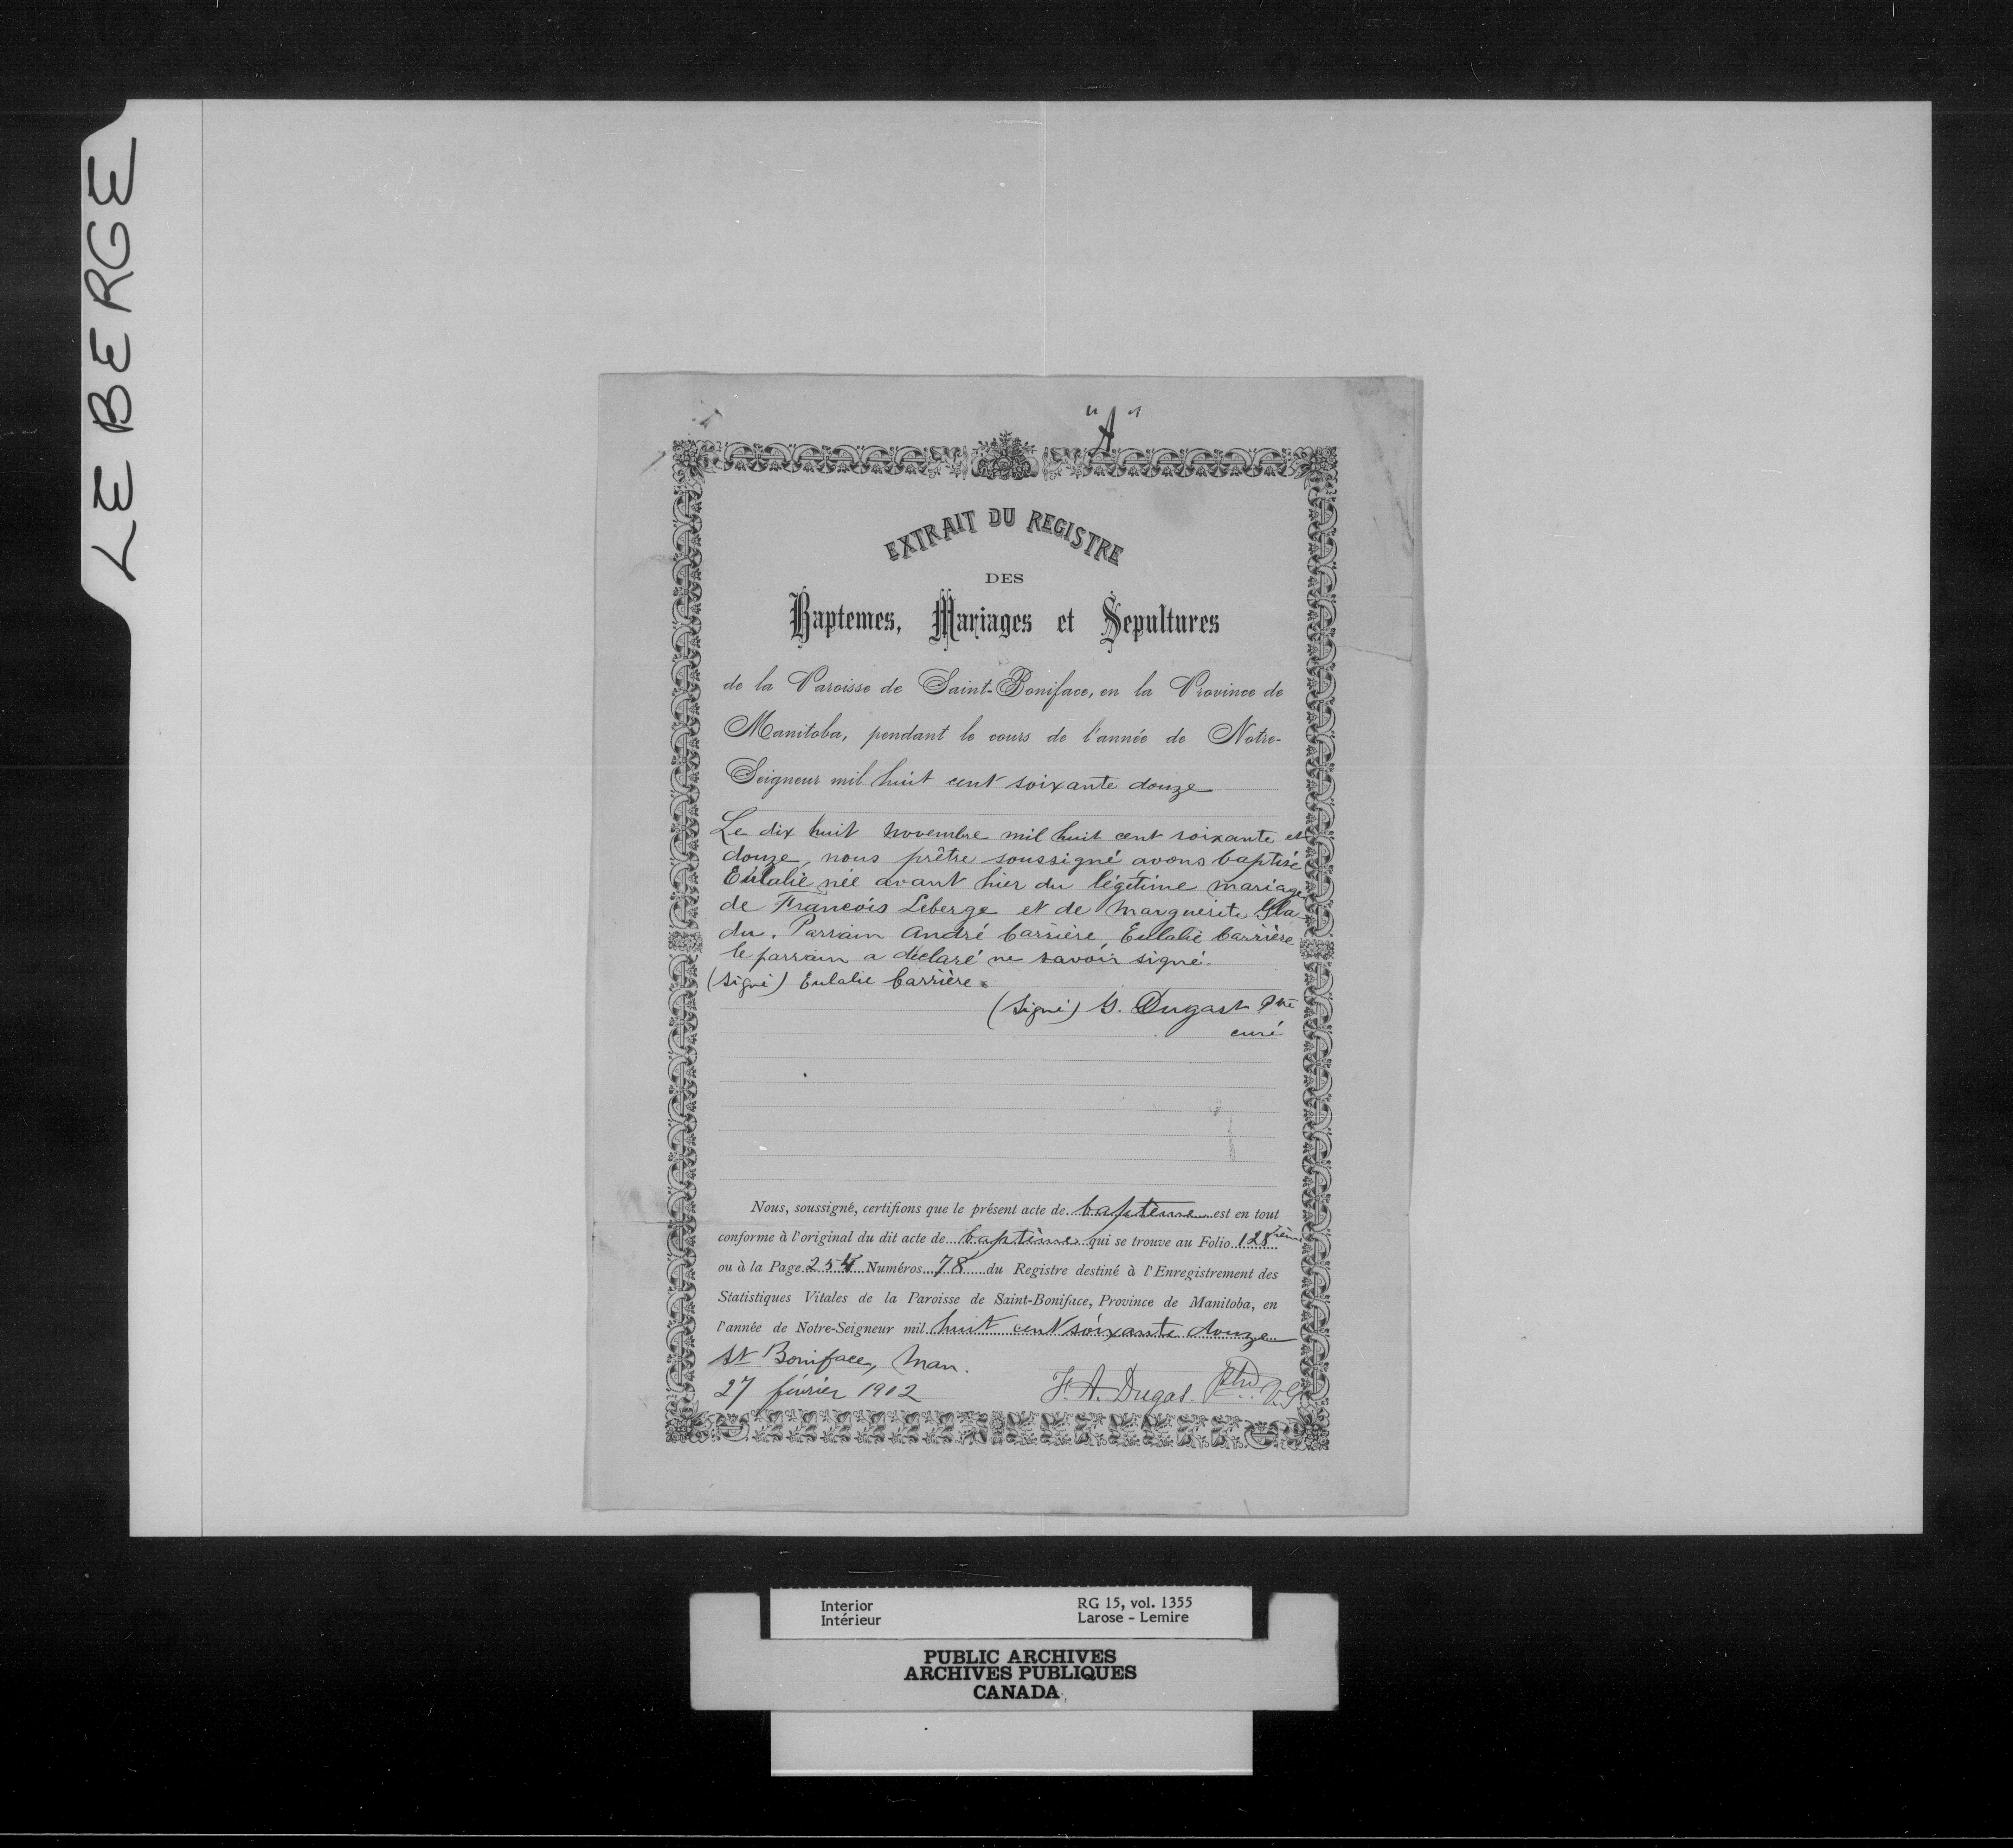 LEBERGE
"A"
EXTRAIT DU REGISTRE
DES
Baptemes, Mariages et Sepultures
de la Paroisse de Saint-Boniface, en la Province de
Manitoba, pendant le cours de l'année de Notre-
Seigneur mil huit cent soixante douze
Le dix huit Novembre mil huit cent soixante et
douze, nous prêtre soussigné avons baptisé
Eulalie née avant hier du légitime mariage
de Francois Leberge et de Marguerite Gla-
du. Parrain André Carrière, Eulalie Carrière
le parrain a déclaré ne savoir signé.
(Signé) Eulalie Carrière.
(Signé) G. Dugast Ptre
curé
Nous, soussigné, certifions que le présent acte de baptême est en tout
conforme à l'original du dit acte de baptême qui se trouve au Folio 128ième
ou à la Page 254 Numéros 78 du Registre destiné à l'Enregistrement des
Statistiques Vitales de la Paroisse de Saint-Boniface, Province de Manitoba, en
l'année de Notre-Seigneur mil huit cent soixante douze
St Boniface, Man.
27 février 1902 F. A. Dugas. Ptre V.G.
Interior RG 15, vol. 1355
Intérieur Larose - Lemire
PUBLIC ARCHIVES
ARCHIVES PUBLIQUES
CANADA